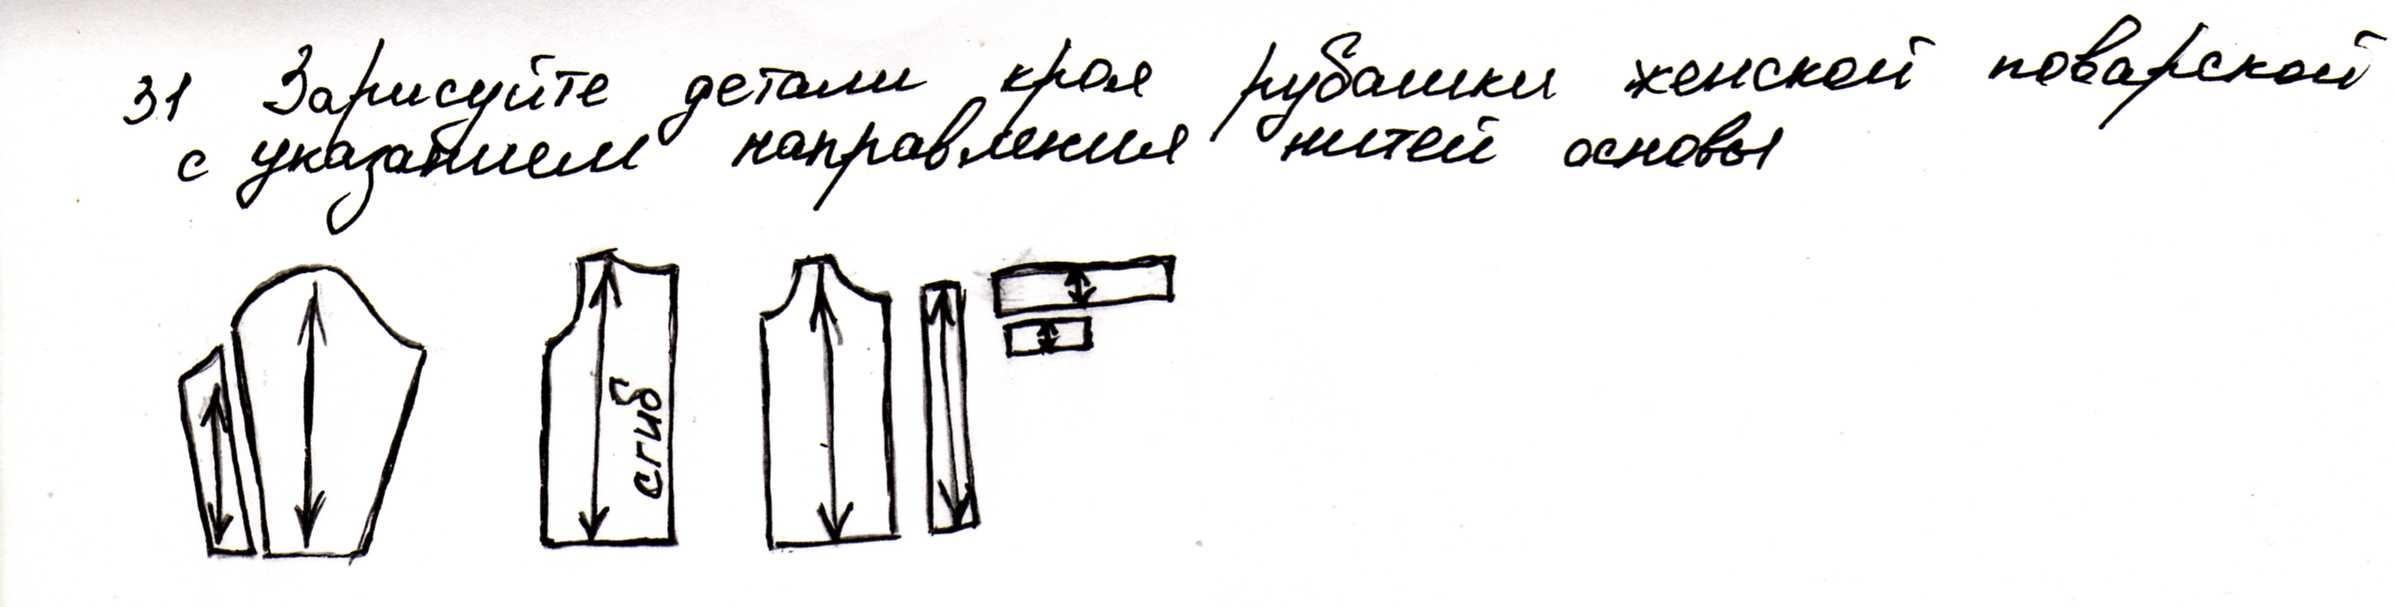 31 Зарисуйте детали кроя рубашки женской поварской
с указанием направления нитей основы
сгиб